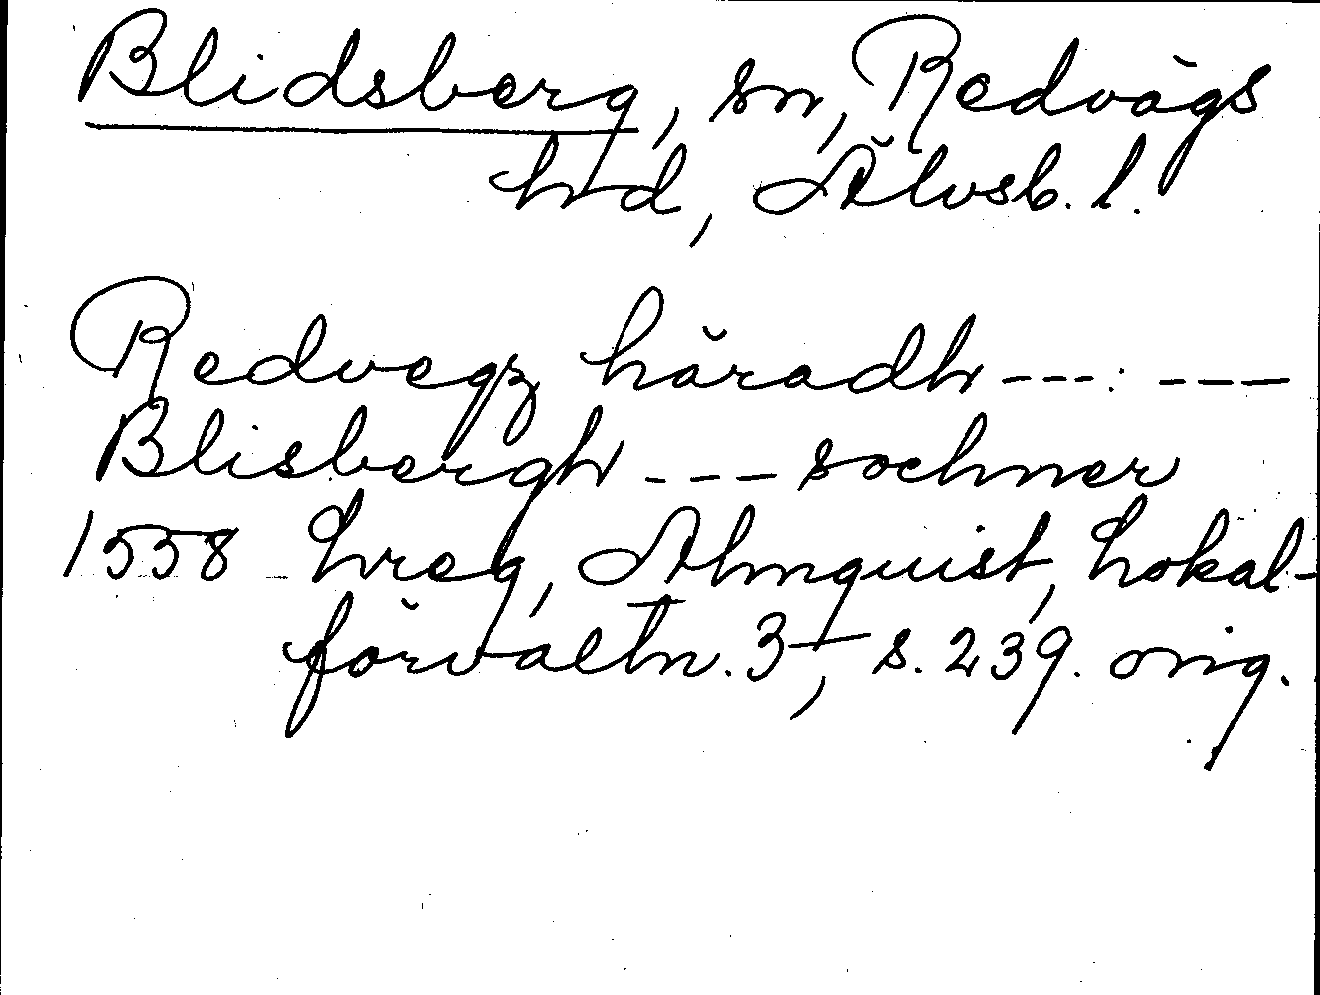 Blidsberg, sn, Redvägs
hd, Älvsb. l.
Redvegz häradh --- ---
Blisbergh --- sochner
1558 Lreg, Almquist, Lokal-
förvaltn. 3, s. 239. orig.